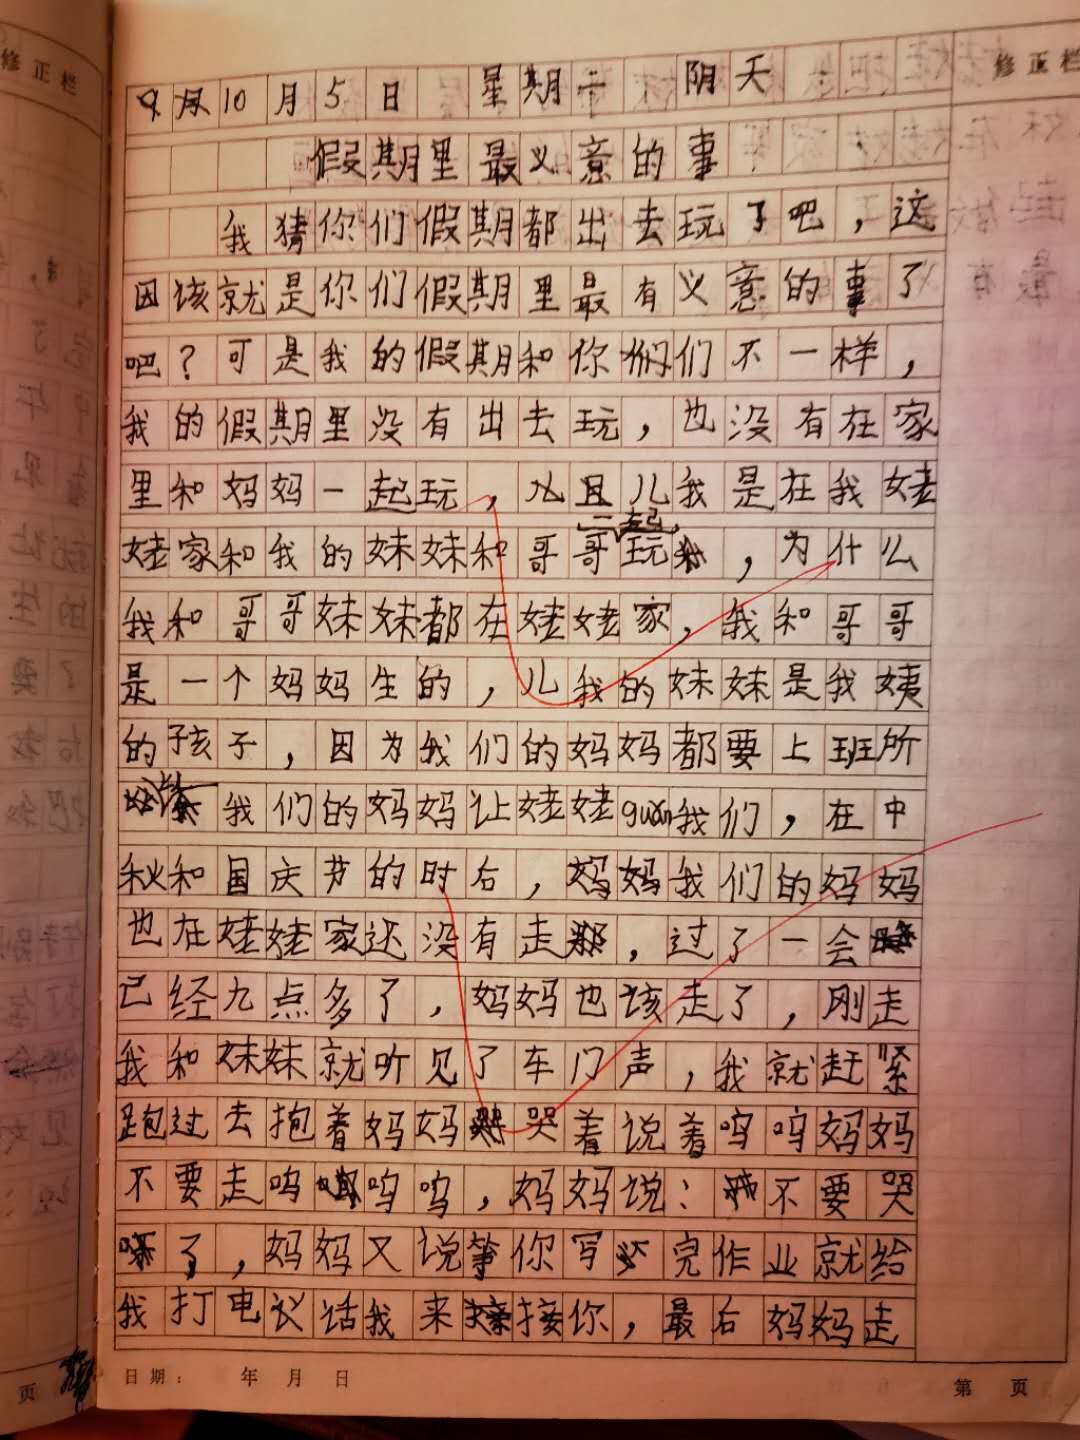 修正栏
修正栏
10月5日 星期二 阴天
假期里最义意的事
我猜你们假期都出去玩了吧，这
因该就是你们假期里最有义意的事了
吧？可是我的假期和你们不一样，
我的假期里没有出去玩，也没有在家
里和妈妈一起玩，儿且儿我是在我姥
一起
姥家和我的妹妹和哥哥玩，为什么
我和哥哥妹妹都在姥姥家，我和哥哥
是一个妈妈生的，儿我的妹妹是我姨
的孩子，因为我们的妈妈都要上班所
我们的妈妈让姥姥guǎn我们，在中
秋和国庆节的时后，妈妈我们的妈妈
也在姥姥家还没有走那，过了一会
己经九点多了，妈妈也该走了，刚走
我和妹妹就听见了车门声，我就赶紧
跑过去抱着妈妈哭着说着呜呜妈妈
不要走呜呜呜，妈妈说：不要哭
了，妈妈又说等你写完作业就给
我打电话我来接你，最后妈妈走
页
日期： 年 月 日
第 页